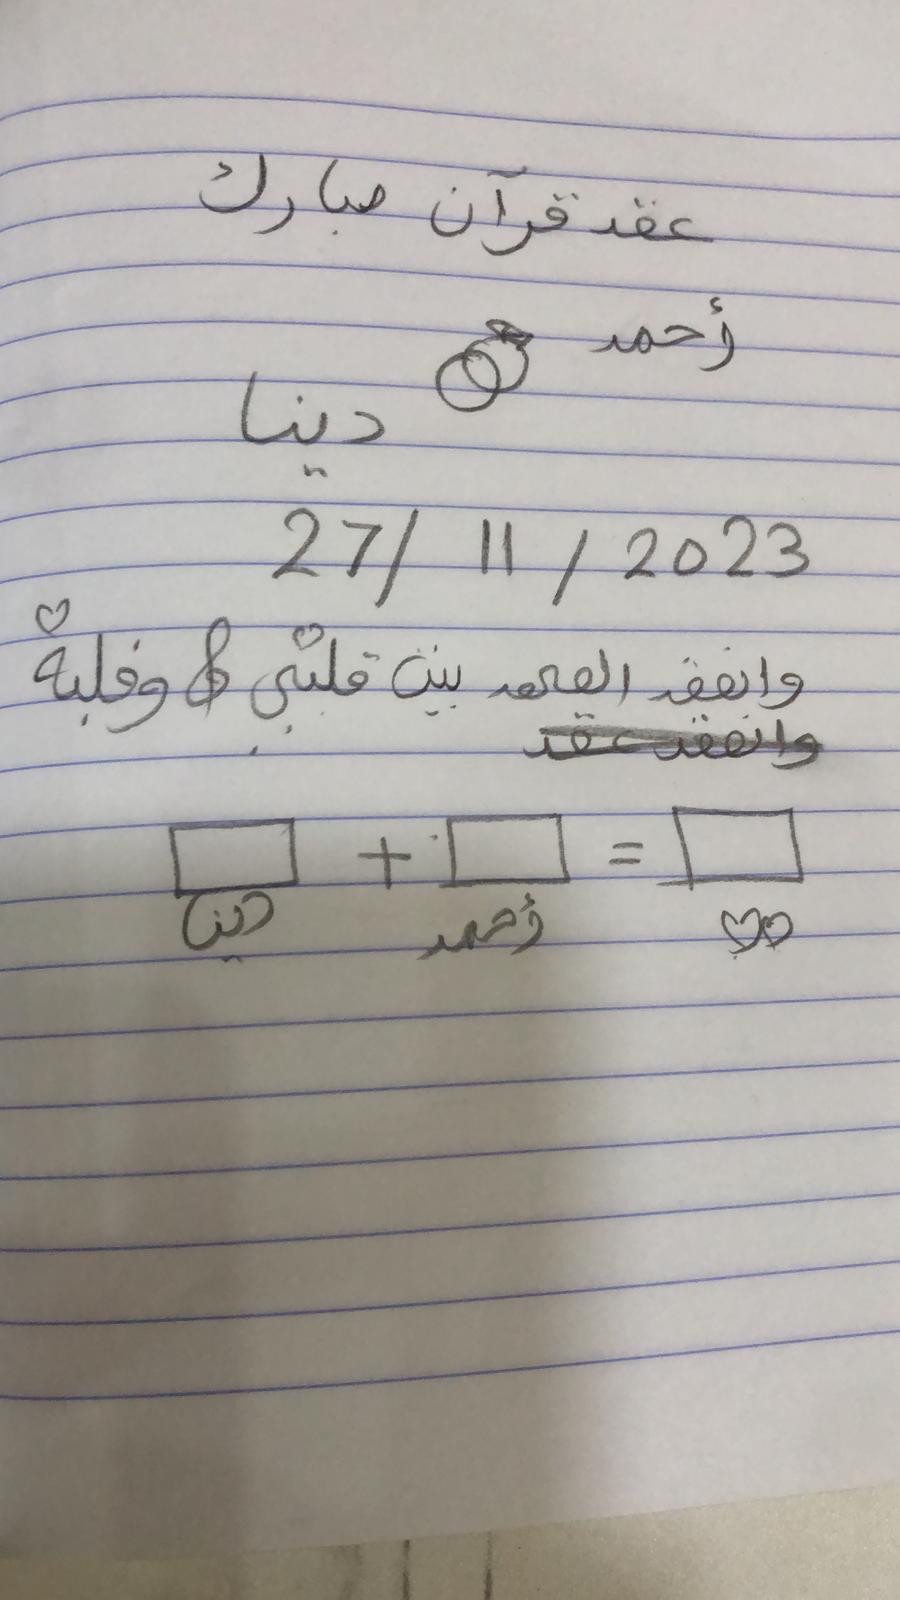 عقد قرآن مبارك
أحمد
دينا
27/ 11 / 2023
وانعقد العهد بين قلبي & وقلبه
وانعقد عقد
+ =
دينا أحمد